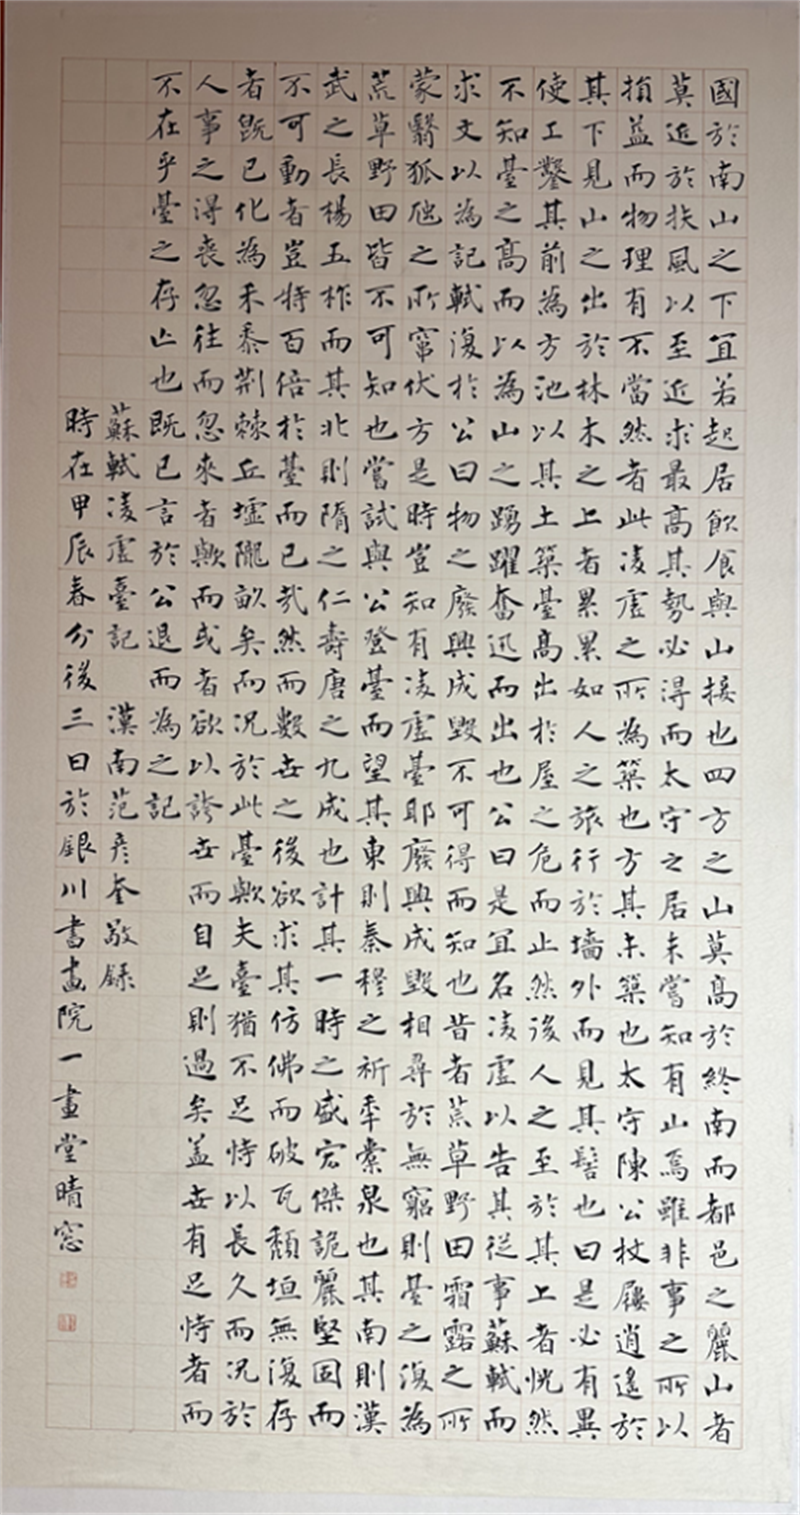 國於南山之下宜若起居飲食與山接也四方之山莫高於終南而都邑之麗山者
莫近於扶風以至近求最高其勢必得而太守之居未嘗知有山焉雖非事之所以
損益而物理有不當然者此淩虛之所為築也方其未築也太守陳公杖屨逍遙於
其下見山之出於林木之上者累累如人之旅行於墻外而見其髻也曰是必有異
使工鑿其前為方池以其土築臺高出於屋之危而止然後人之至於其上者恍然
不知臺之高而以為山之踴躍奮迅而出也公曰是宜名淩虛以告其從事蘇軾而
求文以為記軾復於公曰物之廢興成毀不可得而知也昔者荒草野田霜露之所
蒙翳狐虺之所竄伏方是時豈知有淩虛臺耶廢興成毀相尋於無窮則臺之復為
荒草野田皆不可知也嘗試與公登臺而望其東則秦穆之祈年橐泉也其南則漢
武之長楊五柞而其北則隋之仁壽唐之九成也計其一時之盛宏傑詭麗堅固而
不可動者豈特百倍於臺而已哉然而數世之後欲求其仿佛而破瓦頹垣無復存
者既已化為禾黍荊棘丘墟隴畝矣而況於此臺歟夫臺猶不足恃以長久而況於
人事之得喪忽往而忽來者歟而或者欲以誇世而自足則過矣蓋世有足恃者而
不在乎臺之存亡也既已言於公退而為之記
蘇軾淩虛臺記 漢南范彥奎敬錄
時在甲辰春分後三日於銀川書畫院一畫堂晴窓